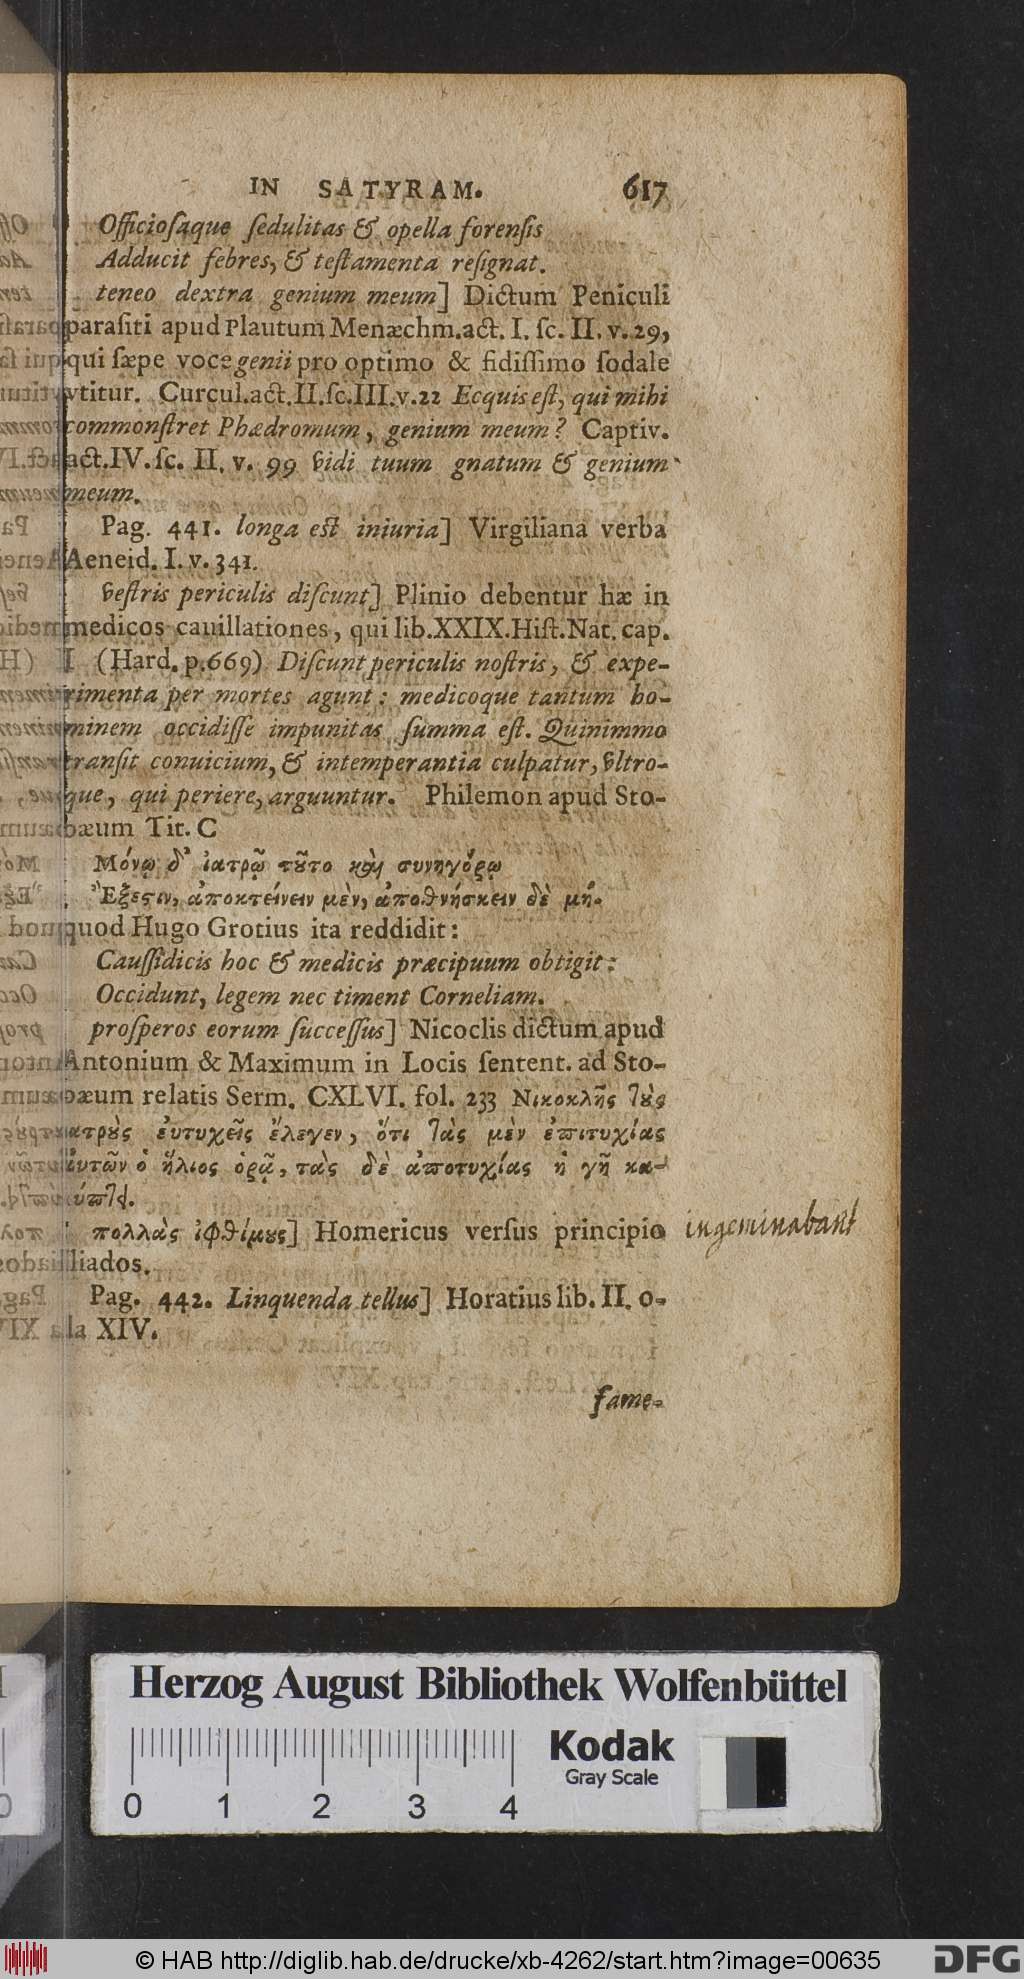 IN SATYRAM. 617
Officiosaque sedulitas & opella forensis
Adducit febres, & testamenta resignat.
teneo dextra genium meum] Dictum Peniculi
parasiti apud Plautum Menæchm. act. I. sc. II. v. 29,
qui sæpe voce genii pro optimo & fidissimo sodale
vtitur. Curcul. act. II. sc. III. v. 22 Ecquis est, qui mihi
commonstret Phædromum, genium meum? Captiv.
act. IV. sc. II. v. 99 vidi tuum gnatum & genium
meum.
Pag. 441. longa est iniuria] Virgiliana verba
Aeneid. I. v. 341.
vestris periculis discunt] Plinio debentur hæ in
medicos cauillationes, qui lib. XXIX. Hist. Nat. cap.
I (Hard. p. 669) Discunt periculis nostris, & expe-
rimenta per mortes agunt: medicoque tantum ho-
minem occidisse impunitas summa est. Quinimmo
transit conuicium, & intemperantia culpatur, vltro-
que, qui periere, arguuntur. Philemon apud Sto-
bæum Tit. C
Μόνῳ δ' ἰατρῷ τοῦτο καὶ συνηγόρῳ
Ἔξεστιν, ἀποκτείνειν μὲν, ἀποθνήσκειν δὲ μή.
quod Hugo Grotius ita reddidit:
Caussidicis hoc & medicis præcipuum obtigit:
Occidunt, legem nec timent Corneliam.
prosperos eorum successus] Nicoclis dictum apud
Antonium & Maximum in Locis sentent. ad Sto-
bæum relatis Serm. CXLVI. fol. 233 Νικοκλῆς τοὺς
ἰατροὺς ἐυτυχεῖς ἔλεγεν, ὅτι τὰς μὲν ἐπιτυχίας
ἀυτῶν ὁ ἥλιος ὁρᾷ, τὰς δὲ ἀποτυχίας ἡ γῆ κα-
λύπτει.
πολλὰς ἰφθίμους] Homericus versus principio ingeminabant
Iliados.
Pag. 442. Linquenda tellus] Horatius lib. II. o-
da XIV.
fame-
Herzog August Bibliothek Wolfenbüttel
Kodak
Gray Scale
0 1 2 3 4
© HAB http://diglib.hab.de/drucke/xb-4262/start.htm?image=00635
DFG